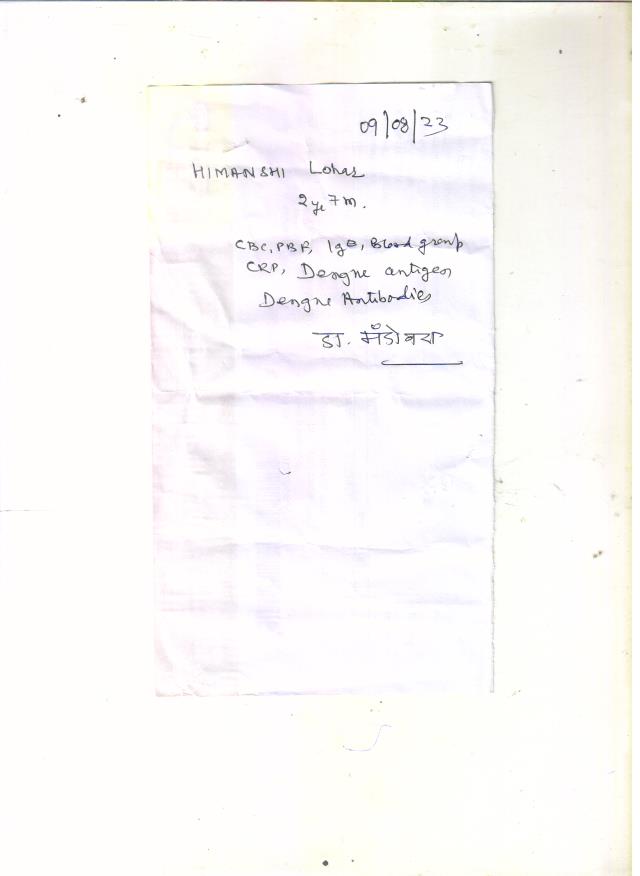 09/08/23
HIMANSHI Lohar
2 yr 7 m.
CBC, PBF, IgE, Blood group
CRP, Dengue antigen
Dengue Antibodies
डा. मंडोवरा